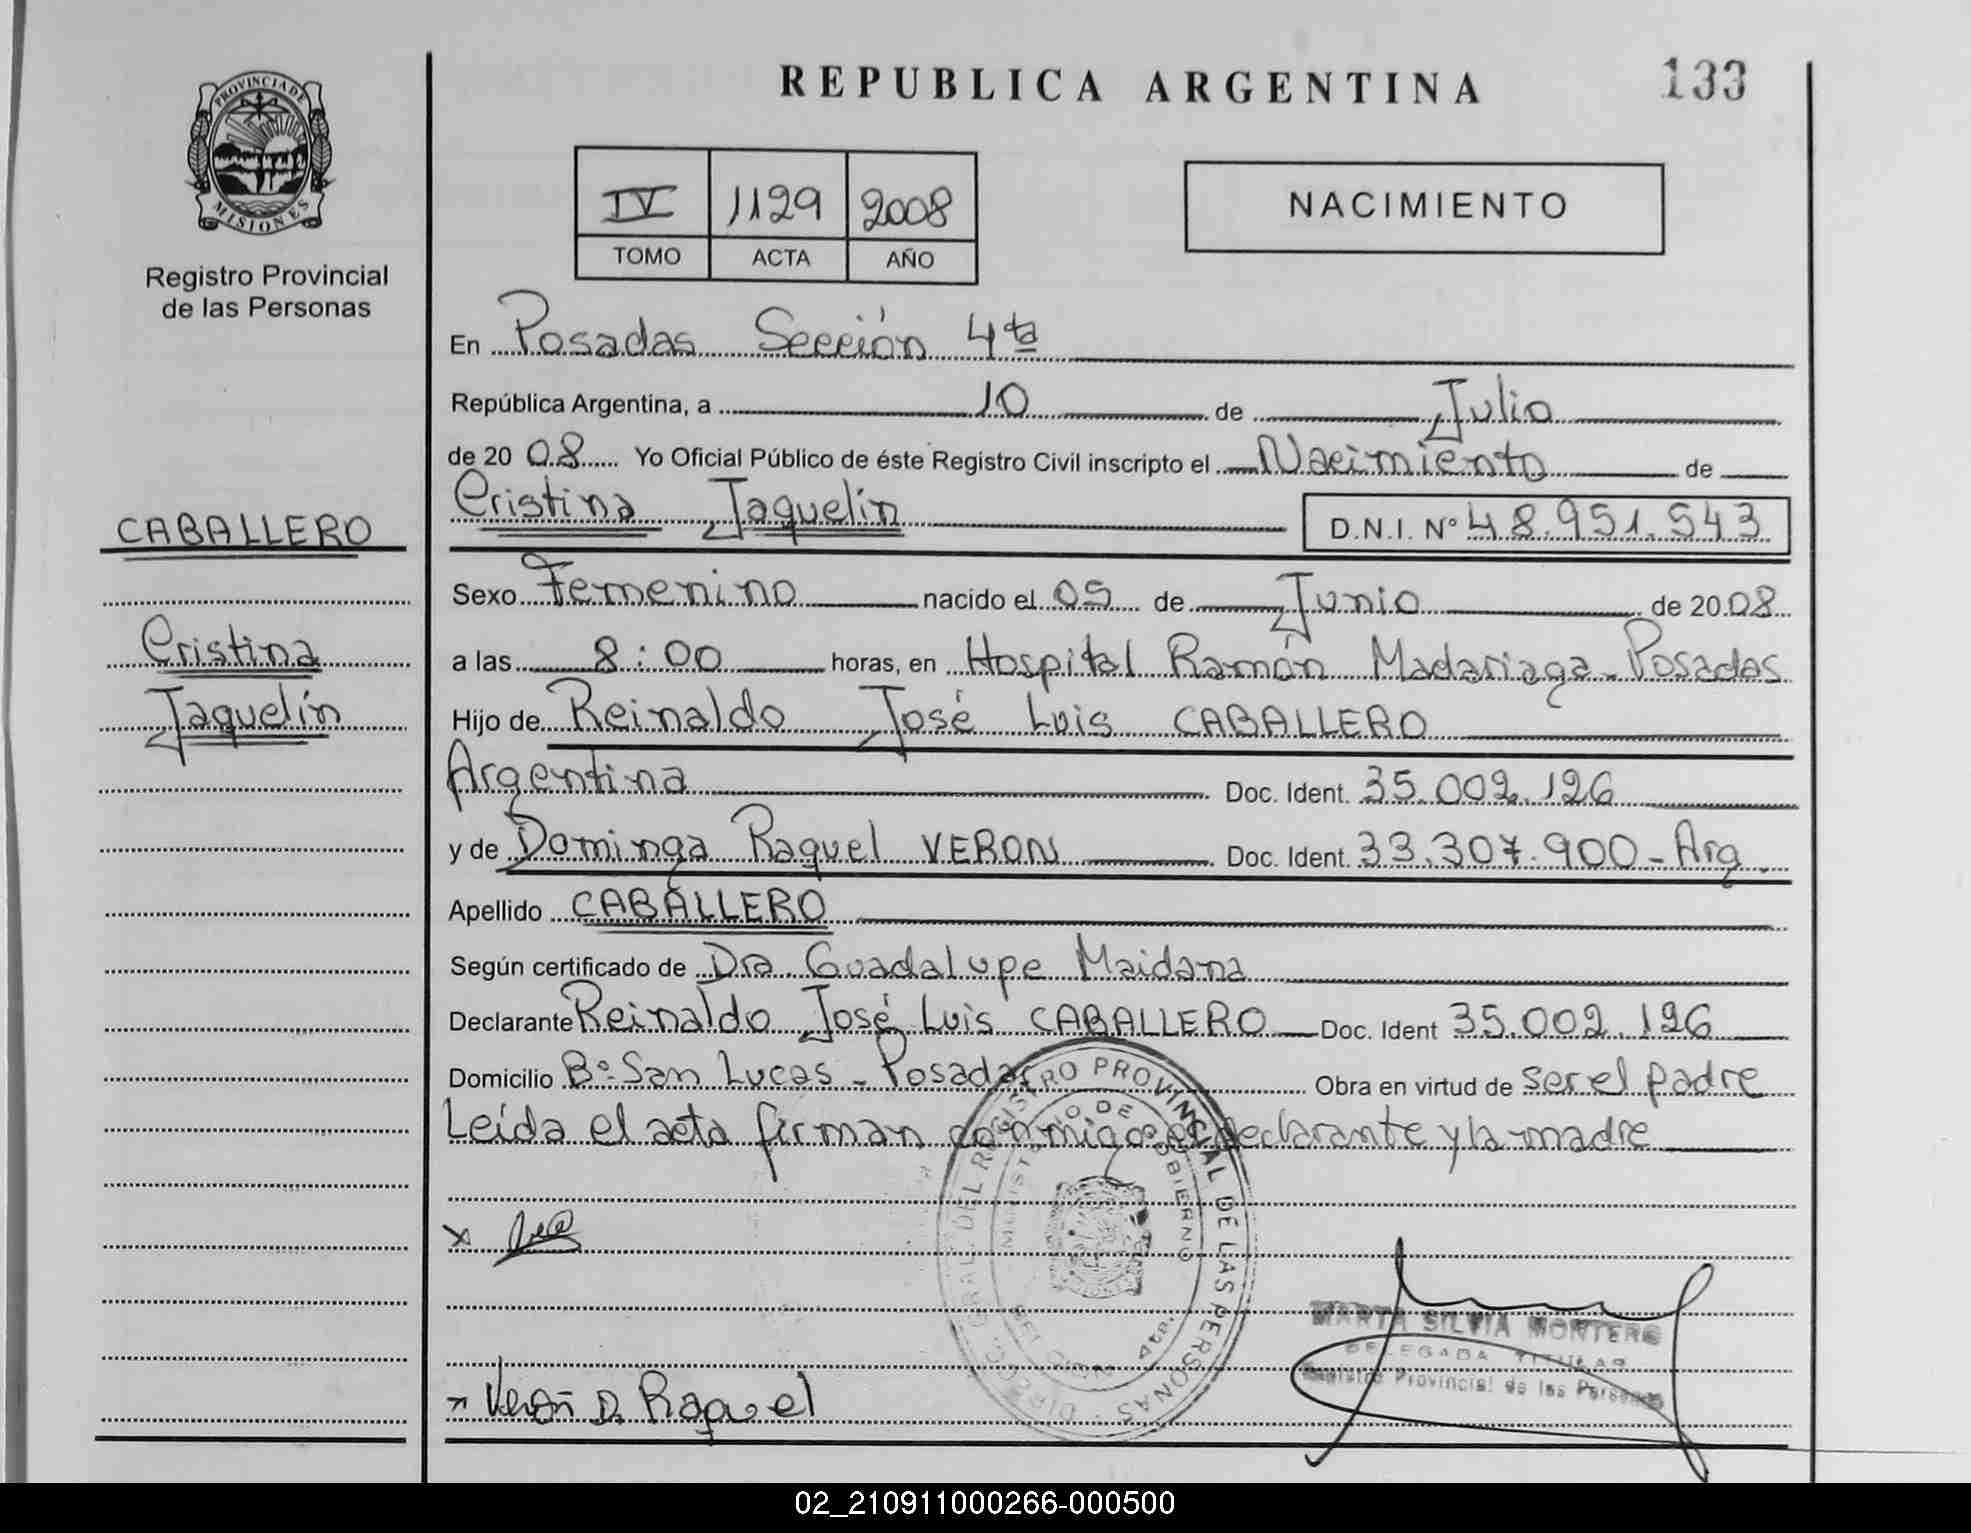 REPUBLICA ARGENTINA
133
PROVINCIA DE
MISIONES
Registro Provincial
de las Personas
IV 1129 2008
TOMO ACTA AÑO
NACIMIENTO
En Posadas Sección 4ta
República Argentina, a 10 de Julio
de 20 08 Yo Oficial Público de éste Registro Civil inscripto el Nacimiento de
Cristina Jaquelín D.N.I. Nº 48.951.543
CABALLERO
Cristina
Jaquelín
Sexo Femenino nacido el 05 de Junio de 20 08
a las 8:00 horas, en Hospital Ramón Madariaga - Posadas
Hijo de Reinaldo José Luis CABALLERO
Argentina Doc. Ident. 35.002.126
y de Dominga Raquel VERON Doc. Ident. 33.307.900 - Arg
Apellido CABALLERO
Según certificado de Dra Guadalupe Maidana
Declarante Reinaldo José Luis CABALLERO Doc. Ident 35.002.126
Domicilio Bº San Lucas - Posadas Obra en virtud de ser el padre
Leída el acta firman conmigo el declarante y la madre
DIREC. GRAL. DEL REGISTRO PROVINCIAL DE LAS PERSONAS
MINISTERIO DE GOBIERNO
4ta.
x
Verón D. Raquel
MARTA SILVIA MONTERO
DELEGADA TITULAR
Registro Provincial de las Personas
02_210911000266-000500